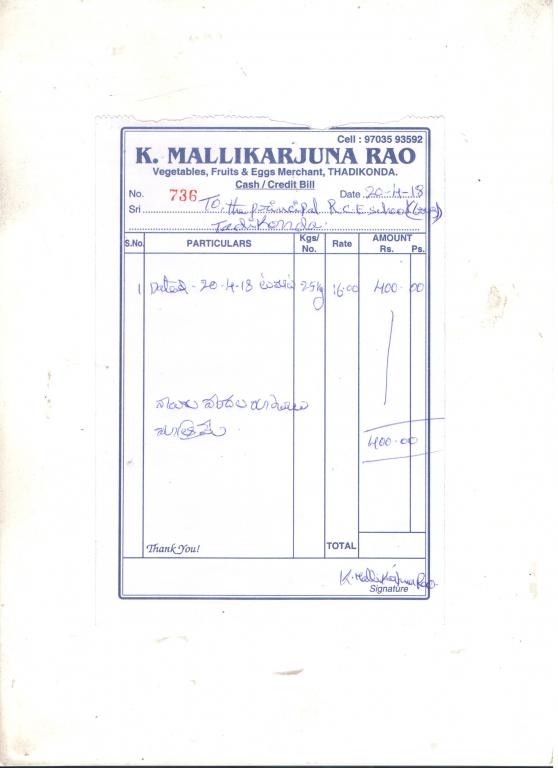 Cell : 97035 93592
K. MALLIKARJUNA RAO
Vegetables, Fruits & Eggs Merchant, THADIKONDA.
Cash / Credit Bill
No. 736 Date 20-4-18
Sri To, the principal R.C.E school
Tadikonda.
S.No. PARTICULARS Kgs/ No. Rate AMOUNT Rs. Ps.
1 Dated - 20-4-18 25kg 16-00 400-00
నాలుగు వందల రూపాయలు
మాత్రమే
400-00
Thank You! TOTAL
K. Mallikarjuna Rao
Signature